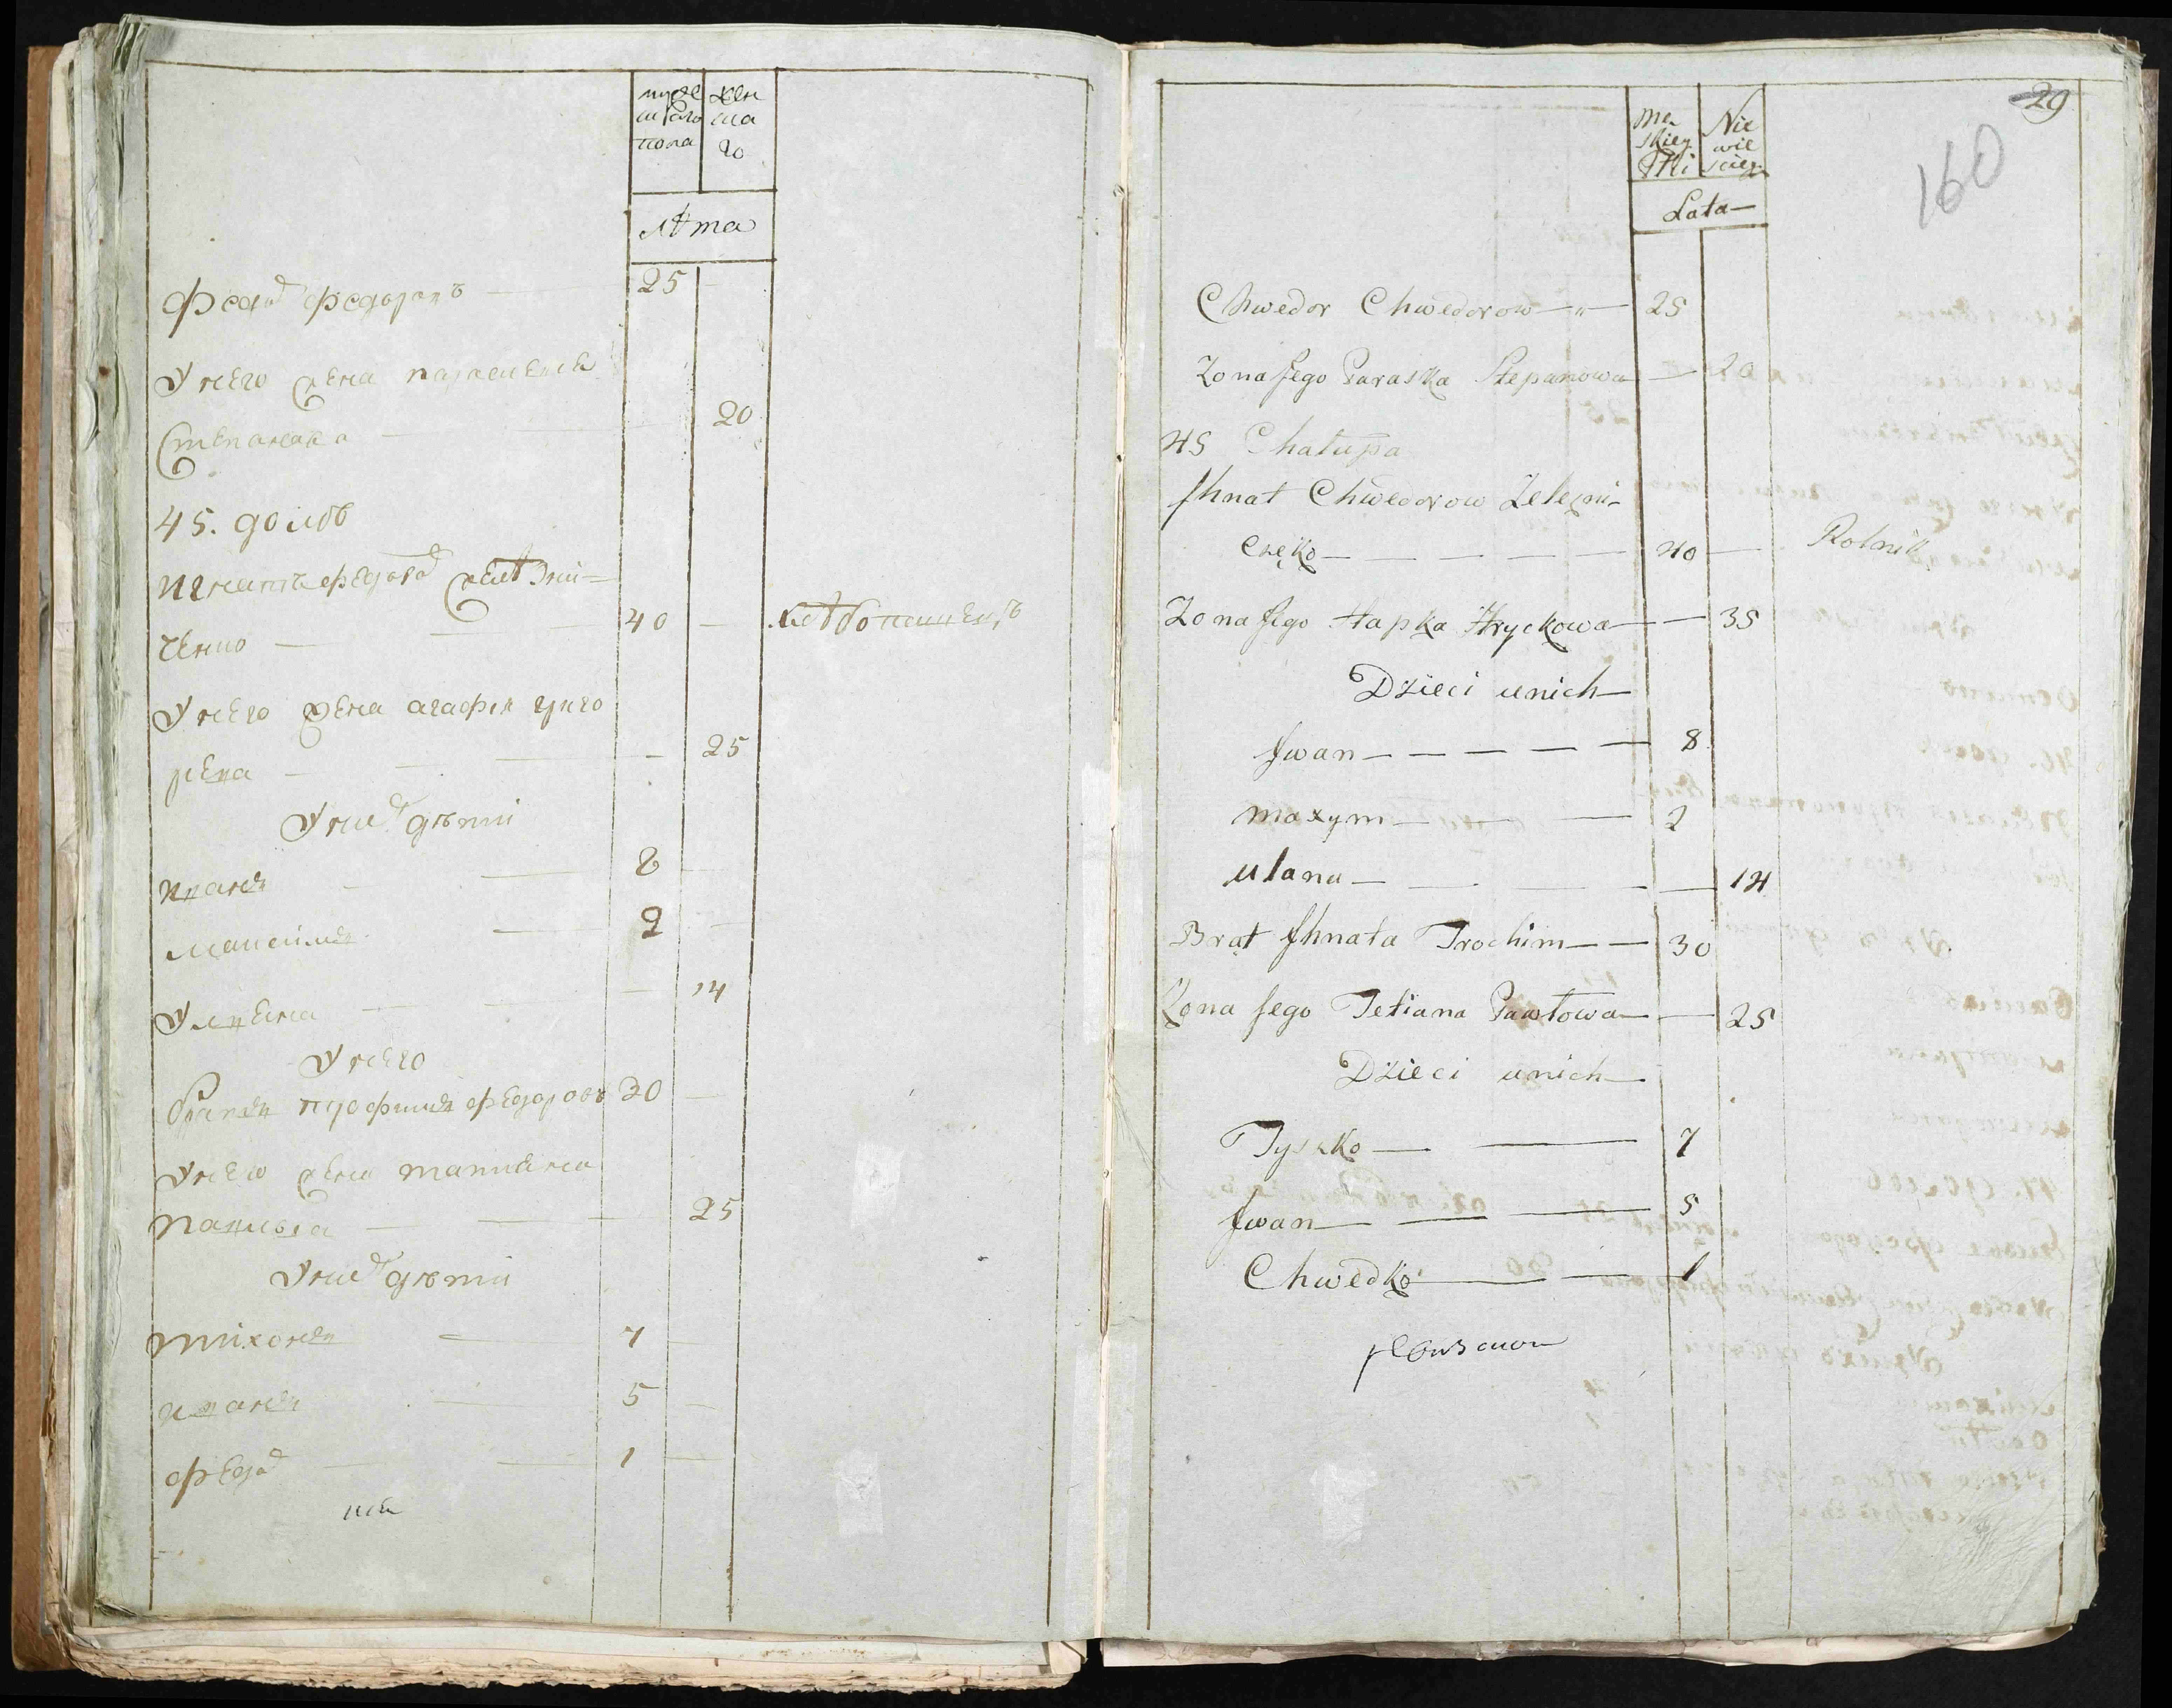 муж
ска­го
пола
жен
ска
го
лѣта
Федоръ Федоровъ — 25
У него жена Параскевия
Степанова — 20
45. домъ
Игнатъ Федоровъ Желѣзни=
ченко — 40 — хлѣбопашецъ
У него жена Агафия Григо
рева — 25
У нихъ дѣти
Иванъ — 8
Максимъ — 2
Улияна — 14
У него
братъ Трофимъ Федоровъ 30
У него жена Татияна
Павлова — 25
У нихъ дѣти
Тихонъ — 7
Иванъ — 5
Федоръ — 1
29
160
Mę
skiey
Płci
Nie
wie
sciey
Lata—
Chwedor Chwedorow — 25
Zona Jego Paraska Stepanowa — 20
45 Chałupa
Jhnat Chwedorow Zelezni-
częko — 40 — Rolnik
Zona Jego Hapka Hryckowa — 35
Dzieci unich—
Jwan — 8
Maxym — 2
Ulana — 14
Brat Jhnata Trochim — 30
Zona Jego Tetiana Pawłowa — 25
Dzieci unich—
Tyszko — 7
Jwan — 5
Chwedko — 1